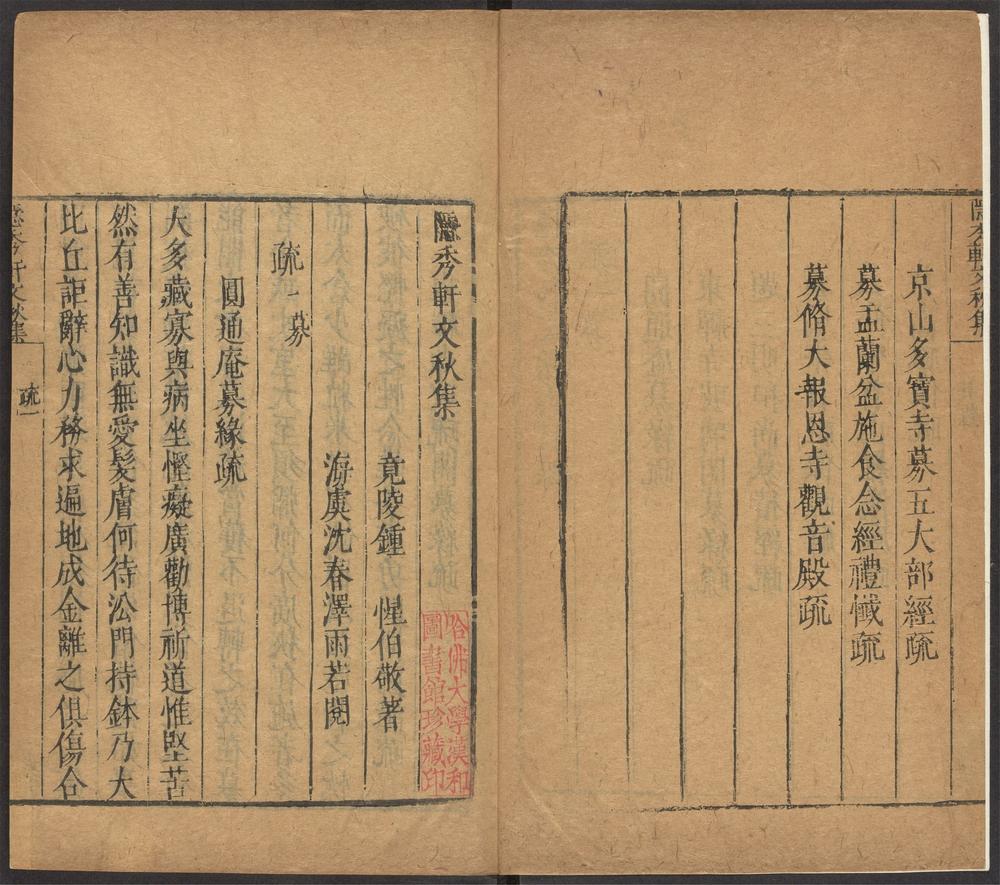 隱秀軒文秋集
京山多寶寺募五大部經疏
募盂蘭盆施食念經禮懴疏
募脩大報恩寺觀音殿疏
隱秀軒文秋集
竟陵鍾 惺伯敬著
哈佛大學漢和
圖書館珍藏印
海虞沈春澤雨若閱
疏一 募
圓通庵募緣疏
大多藏寡與病坐慳癡廣勸博祈道惟堅苦
然有善知識無愛髮膚何待沿門持鉢乃大
比丘詎辭心力務求遍地成金離之俱傷合
隱秀軒文秋集
疏一